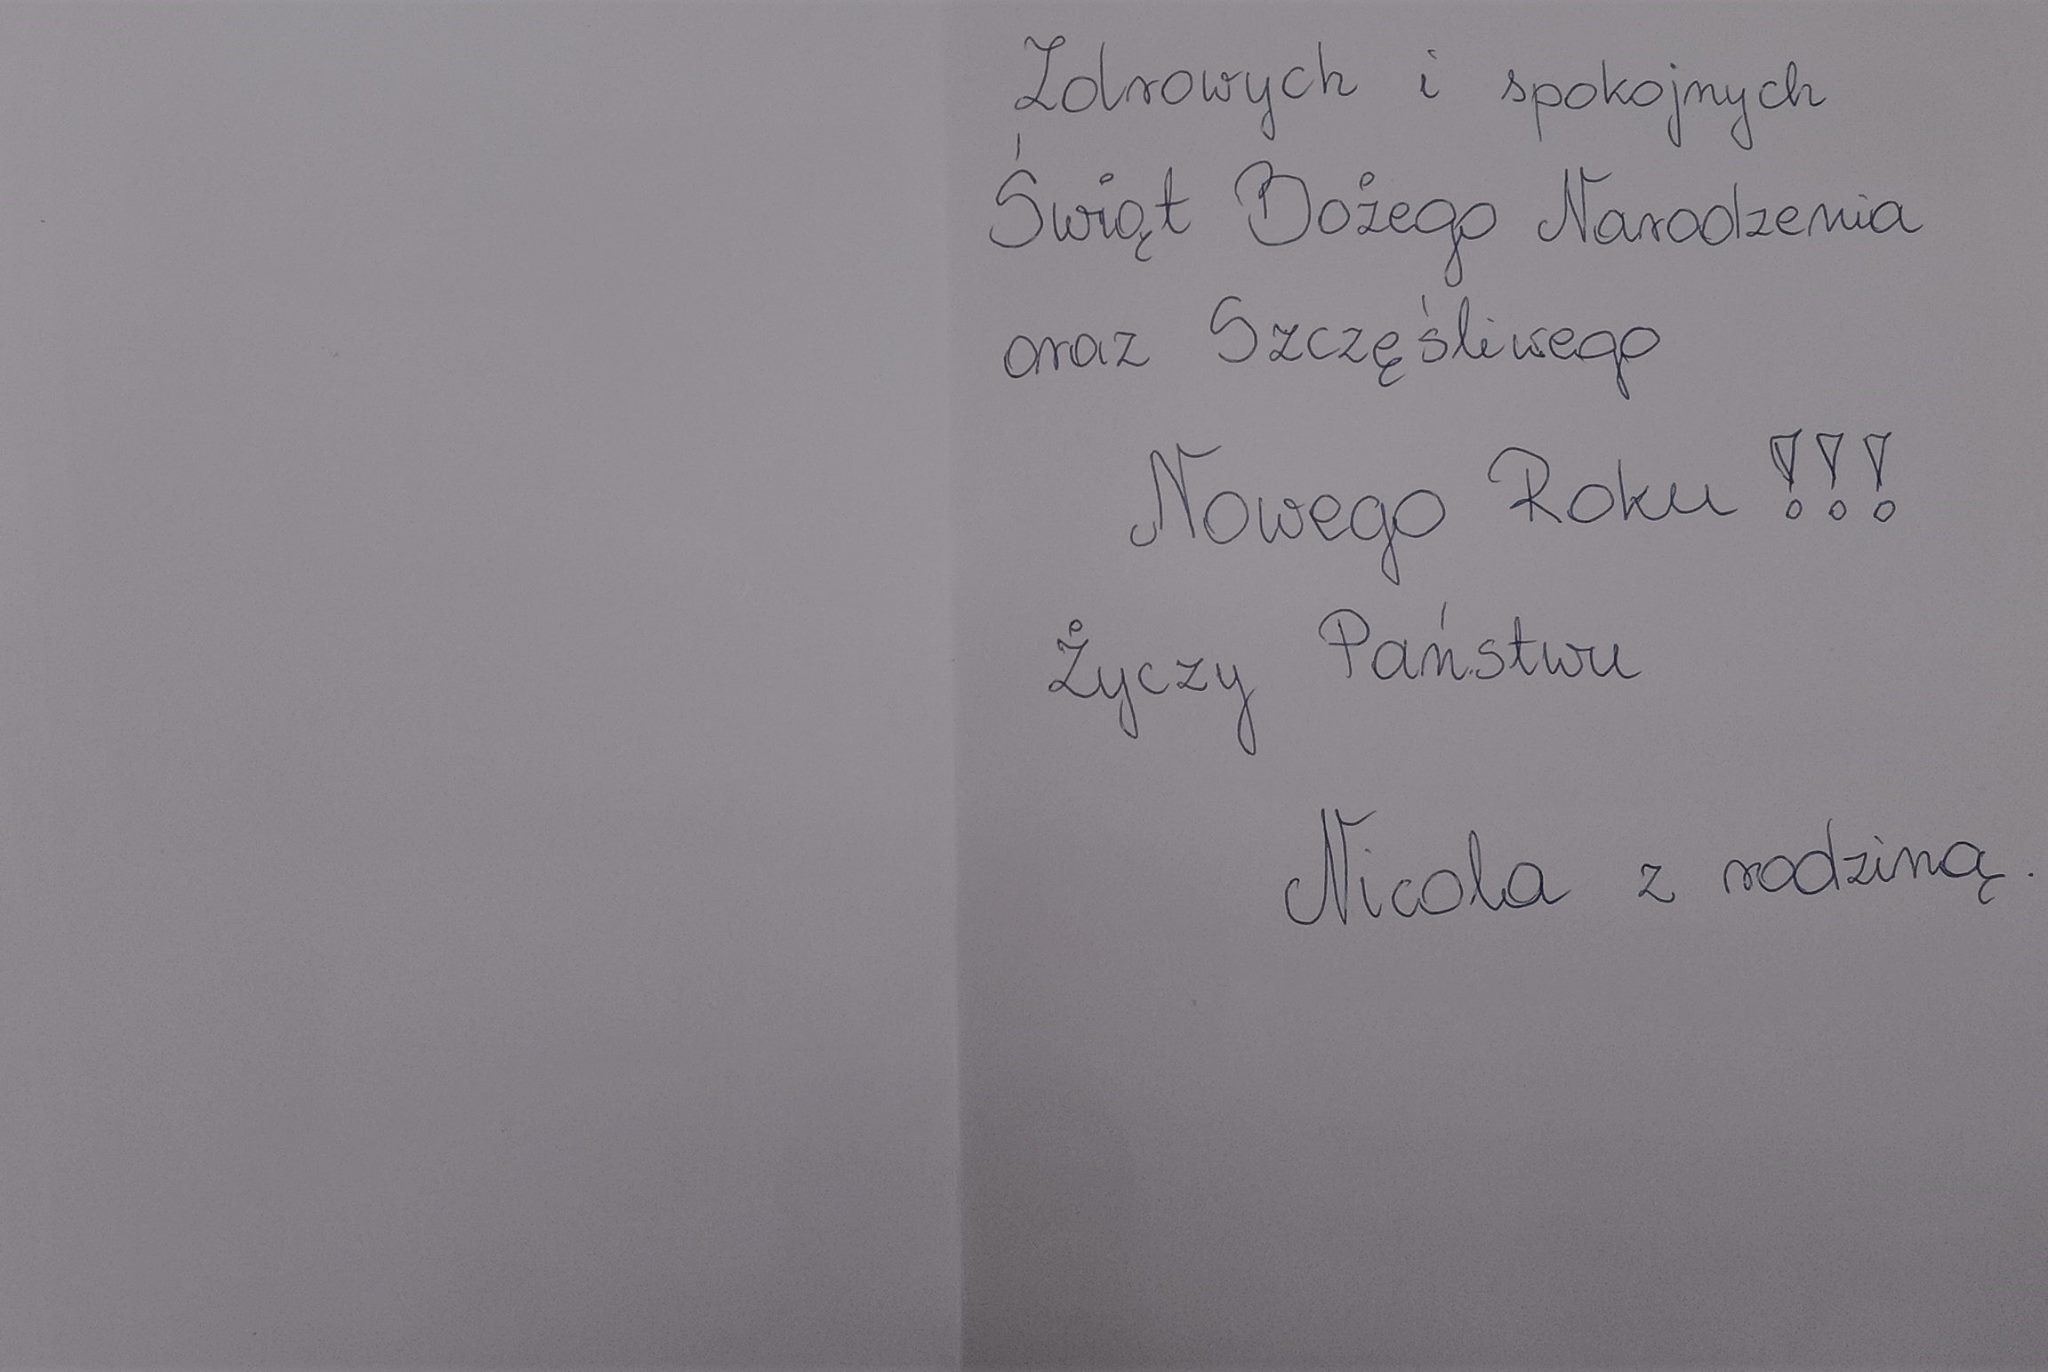 Zdrowych i spokojnych
Świąt Bożego Narodzenia
oraz Szczęśliwego
Nowego Roku !!!
Życzy Państwu
Nicola z rodziną.